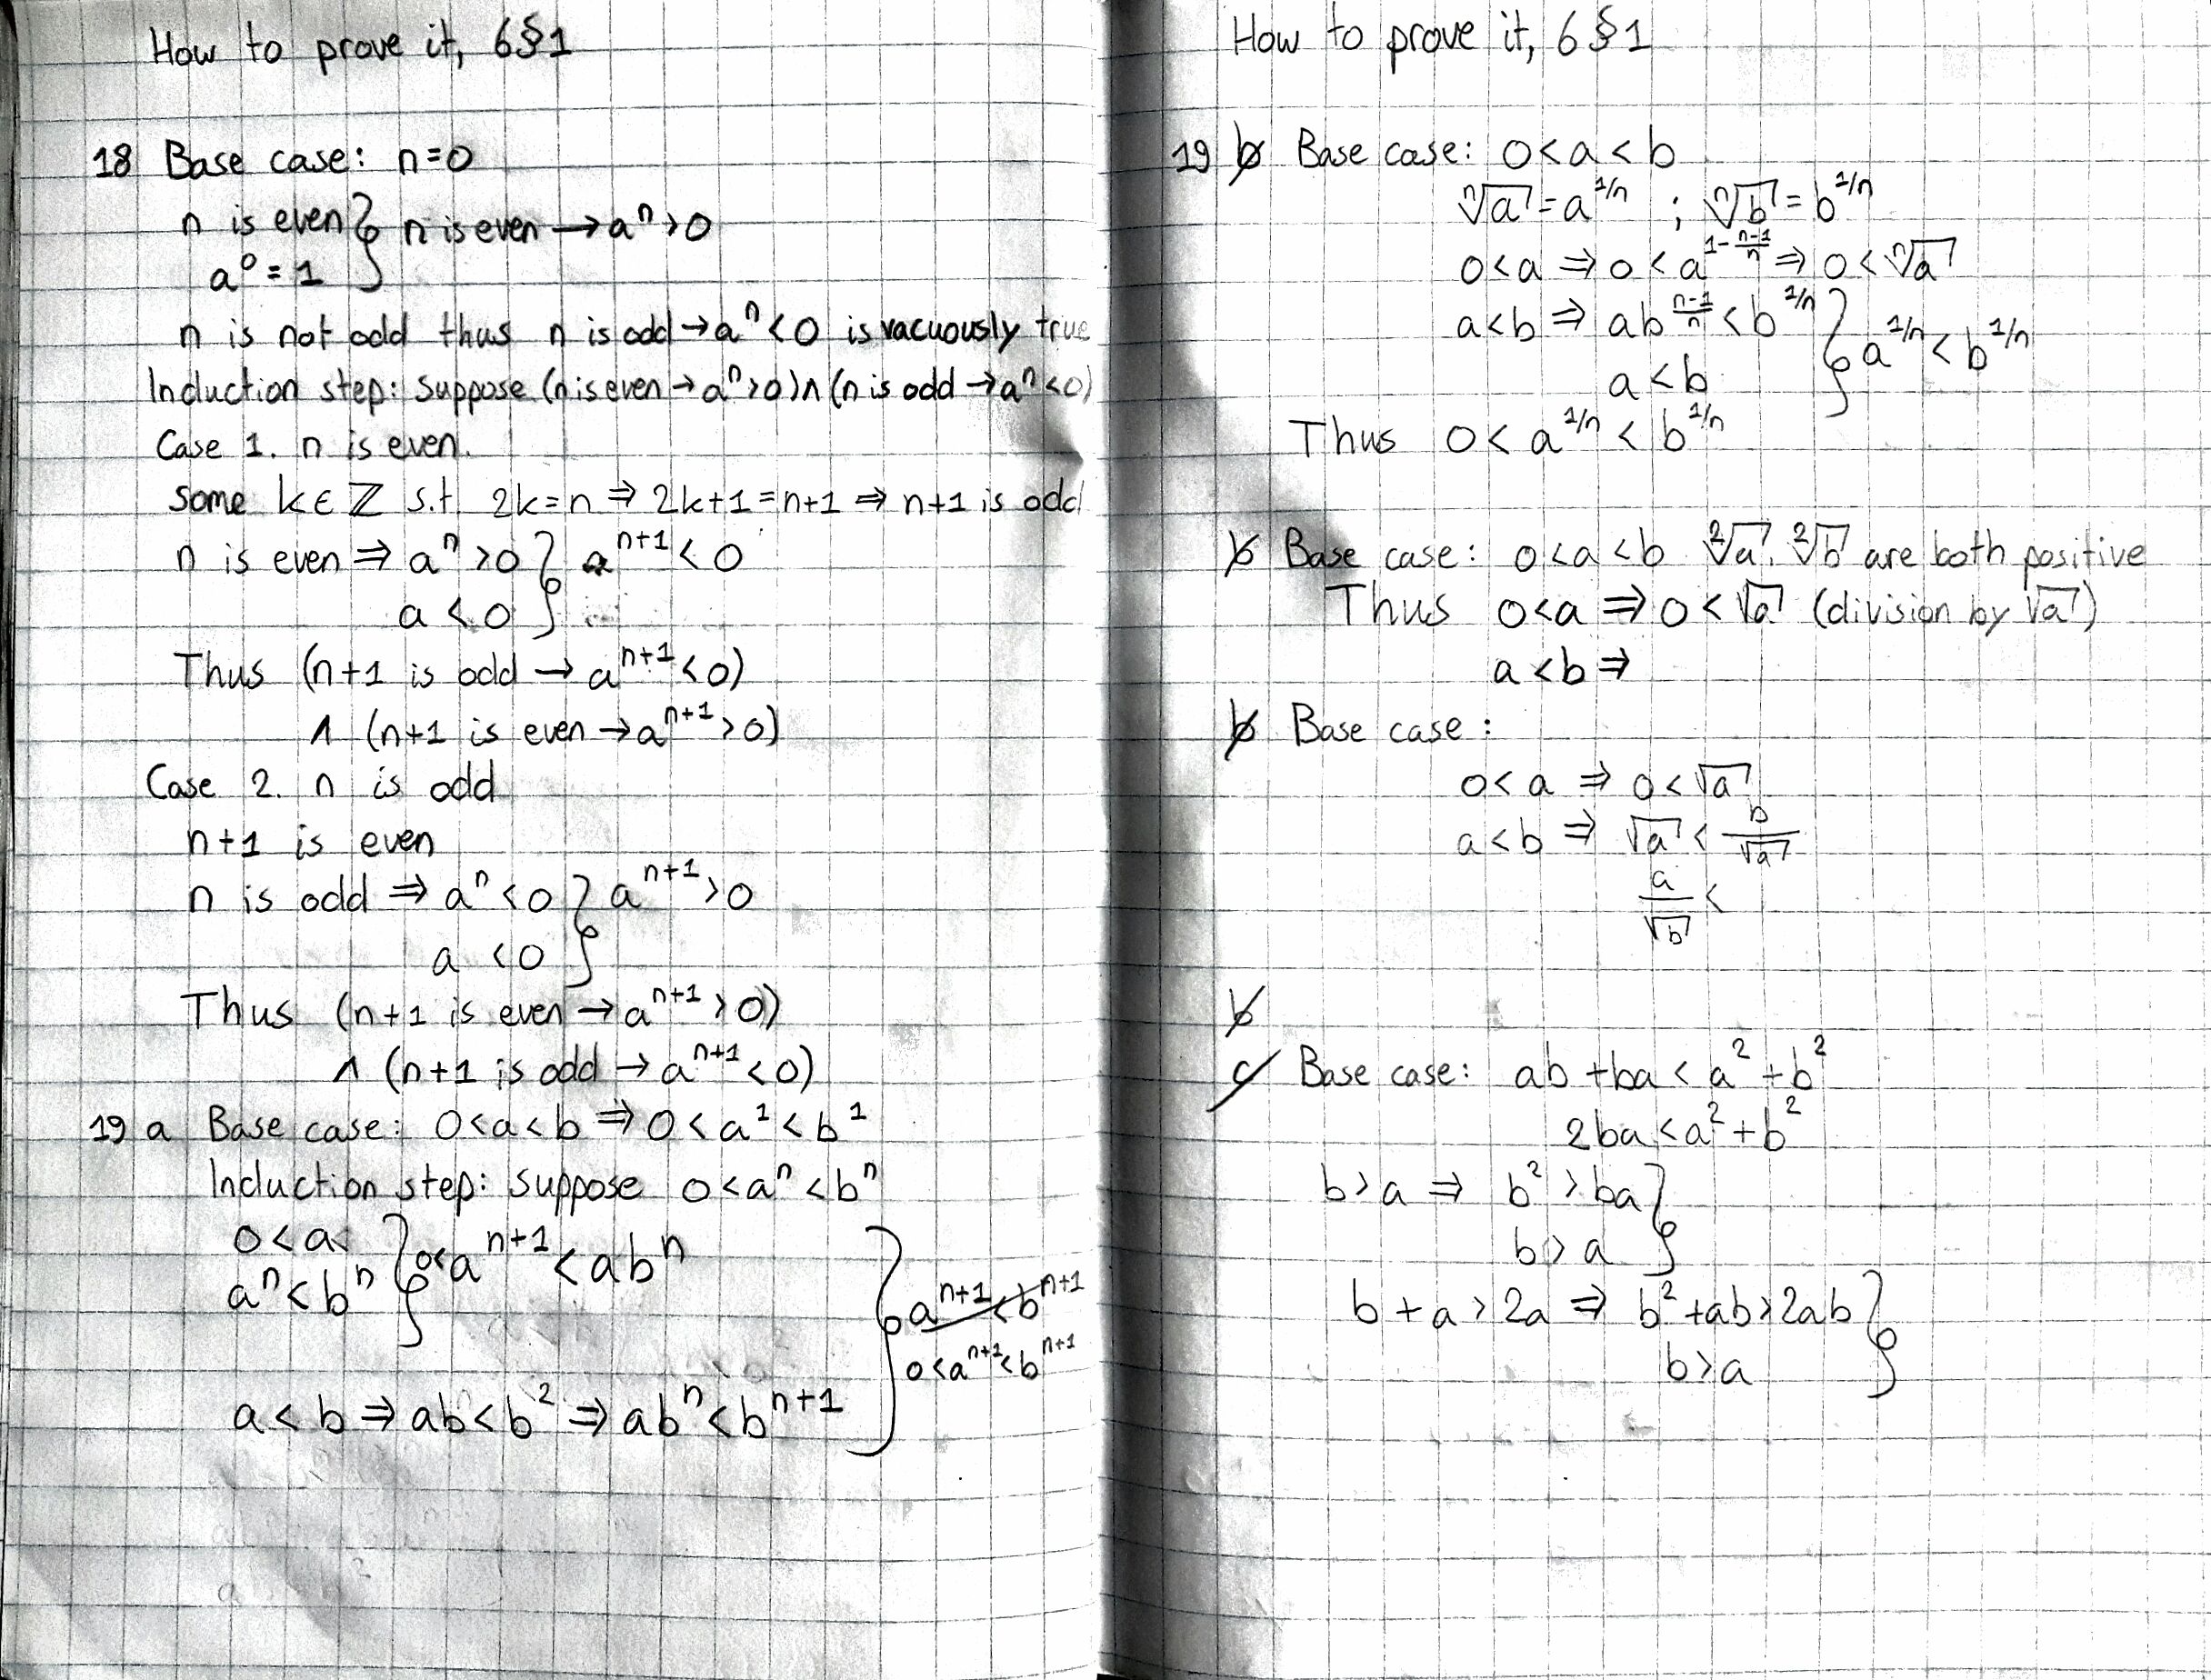 How to prove it, 6§1
18 Base case: n=0
n is even } n is even → aⁿ > 0
a⁰ = 1
n is not odd thus n is odd → aⁿ < 0 is vacuously true
Induction step: suppose (n is even → aⁿ > 0) ∧ (n is odd → aⁿ < 0)
Case 1. n is even.
some k ∈ ℤ s.t. 2k = n ⇒ 2k+1 = n+1 ⇒ n+1 is odd
n is even ⇒ aⁿ > 0 } aⁿ⁺¹ < 0
a < 0
Thus (n+1 is odd → aⁿ⁺¹ < 0)
∧ (n+1 is even → aⁿ⁺¹ > 0)
Case 2. n is odd
n+1 is even
n is odd ⇒ aⁿ < 0 } aⁿ⁺¹ > 0
a < 0
Thus (n+1 is even → aⁿ⁺¹ > 0)
∧ (n+1 is odd → aⁿ⁺¹ < 0)
19 a Base case: 0 < a < b ⇒ 0 < a¹ < b¹
Induction step: suppose 0 < aⁿ < bⁿ
0 < a
aⁿ < bⁿ } 0 < aⁿ⁺¹ < abⁿ
} aⁿ⁺¹ < bⁿ⁺¹
0 < aⁿ⁺¹ < bⁿ⁺¹
a < b ⇒ ab < b² ⇒ abⁿ < bⁿ⁺¹
How to prove it, 6§1
19 b Base case: 0 < a < b
ⁿ√a = a^1/n ; ⁿ√b = b^1/n
0 < a ⇒ 0 < a^(1-(n-1)/n) ⇒ 0 < ⁿ√a
a < b ⇒ ab^(n-1)/n < b^1/n } a^1/n < b^1/n
a < b
Thus 0 < a^1/n < b^1/n
b Base case: 0 < a < b ²√a, ²√b are both positive
Thus 0 < a ⇒ 0 < √a (division by √a)
a < b ⇒
b Base case:
0 < a ⇒ 0 < √a
a < b ⇒ √a < b/√a
a/√b <
b
c Base case: ab + ba < a² + b²
2ba < a² + b²
b > a ⇒ b² > ba }
b > a
b + a > 2a ⇒ b² + ab > 2ab }
b > a